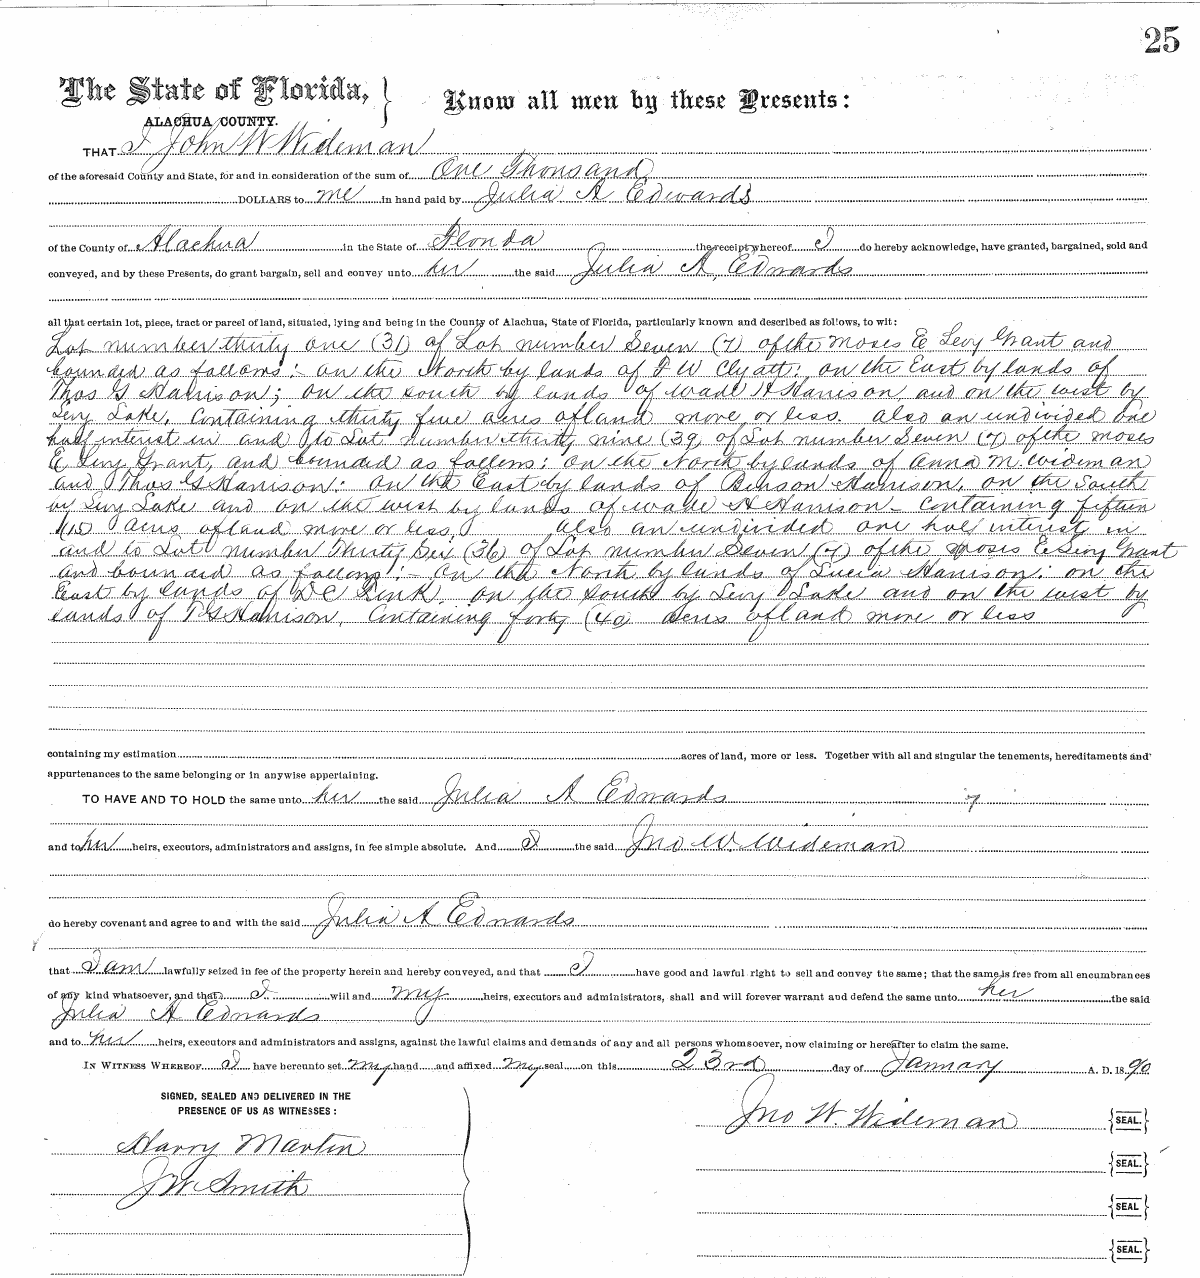 25
The State of Florida, } Know all men by these Presents:
ALACHUA COUNTY.
THAT I John W Wideman
of the aforesaid County and State, for and in consideration of the sum of One Thousand
DOLLARS to me in hand paid by Julia A Edwards
of the County of Alachua in the State of Florida the receipt whereof I do hereby acknowledge, have granted, bargained, sold and
conveyed, and by these Presents, do grant bargain, sell and convey unto her the said Julia A Edwards
all that certain lot, piece, tract or parcel of land, situated, lying and being in the County of Alachua, State of Florida, particularly known and described as follows, to wit:
Lot number thirty one (31) of Lot number Seven (7) of the Moses E Levy Grant and
bounded as follows: on the North by lands of F W Clyatt: on the East by lands of
Thos G Harrison; on the south by lands of Wade H Harrison, and on the west by
Levy Lake, Containing thirty five acres of land more or less. also an undivided one
half interest in and to Lot number thirty nine (39 of Lot number Seven (7) of the Moses
E Levy Grant, and bounded as follows: on the North by lands of Anna M. Wideman
and Thos G Harrison: on the East by lands of Benson Harrison, on the South
by Levy Lake and on the west by lands of Wade H Harrison - Containing fifteen
(15) acres of land more or less, also an undivided one half interest in
and to Lot number Thirty Six (36) of Lot number Seven (7) of the Moses E Levy Grant
and bounded as follows: - on the North by lands of Lucia Harrison: on the
East by lands of D C Kink, on the south by Levy Lake and on the west by
lands of T G Harrison, Containing forty (40 acres of land more or less
containing my estimation acres of land, more or less. Together with all and singular the tenements, hereditaments and
appurtenances to the same belonging or in anywise appertaining.
TO HAVE AND TO HOLD the same unto her the said Julia A Edwards
and to her heirs, executors, administrators and assigns, in fee simple absolute. And I the said Jno W. Wideman
do hereby covenant and agree to and with the said Julia A Edwards
that I am lawfully seized in fee of the property herein and hereby conveyed, and that I have good and lawful right to sell and convey the same; that the same is free from all encumbrances
of any kind whatsoever, and that I will and my heirs, executors and administrators, shall and will forever warrant and defend the same unto her the said
Julia A Edwards
and to her heirs, executors and administrators and assigns, against the lawful claims and demands of any and all persons whomsoever, now claiming or hereafter to claim the same.
IN WITNESS WHEREOF I have hereunto set my hand and affixed my seal on this 23rd day of January A. D. 1890
SIGNED, SEALED AND DELIVERED IN THE
PRESENCE OF US AS WITNESSES:
Jno W. Wideman {SEAL.}
Harry Martin
{SEAL.}
J W Smith
{SEAL}
{SEAL.}